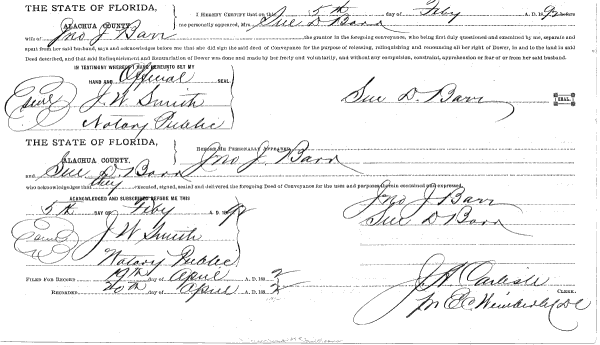 THE STATE OF FLORIDA,
ALACHUA COUNTY.
I HEREBY CERTIFY that on this 5th day of Feby A. D. 1892 before
me personally appeared, Mrs. Sue D. Barr
wife of Jno J. Barr the grantor in the foregoing conveyance, who being first duly questioned and examined by me, separate and
apart from her said husband, says and acknowledges before me that she did sign the said deed of Conveyance for the purpose of releasing, relinquishing and renouncing all her right of Dower, in and to the land in said
Deed described, and that said Relinquishment and Renunciation of Dower was done and made by her freely and voluntarily, and without any compulsion, constraint, apprehension or fear of or from her said husband.
IN TESTIMONY WHEREOF I HAVE HEREUNTO SET MY
HAND AND Official SEAL
J. W. Smith
Notary Public
Sue D. Barr SEAL.
THE STATE OF FLORIDA,
ALACHUA COUNTY.
BEFORE ME PERSONALLY APPEARED Jno J. Barr
and Sue D. Barr
who acknowledges that they executed, signed, sealed and delivered the foregoing Deed of Conveyance for the uses and purposes therein contained and expressed.
ACKNOWLEDGED AND SUBSCRIBED BEFORE ME THIS
5th DAY OF Feby A. D. 189
Jno J. Barr
Sue D. Barr
J. W. Smith
Notary Public
FILED FOR RECORD 19th day of April A. D. 1892
RECORDED 20th day of April A. D. 1892
J. A. Carlisle CLERK.
pr E C Wimberly D C